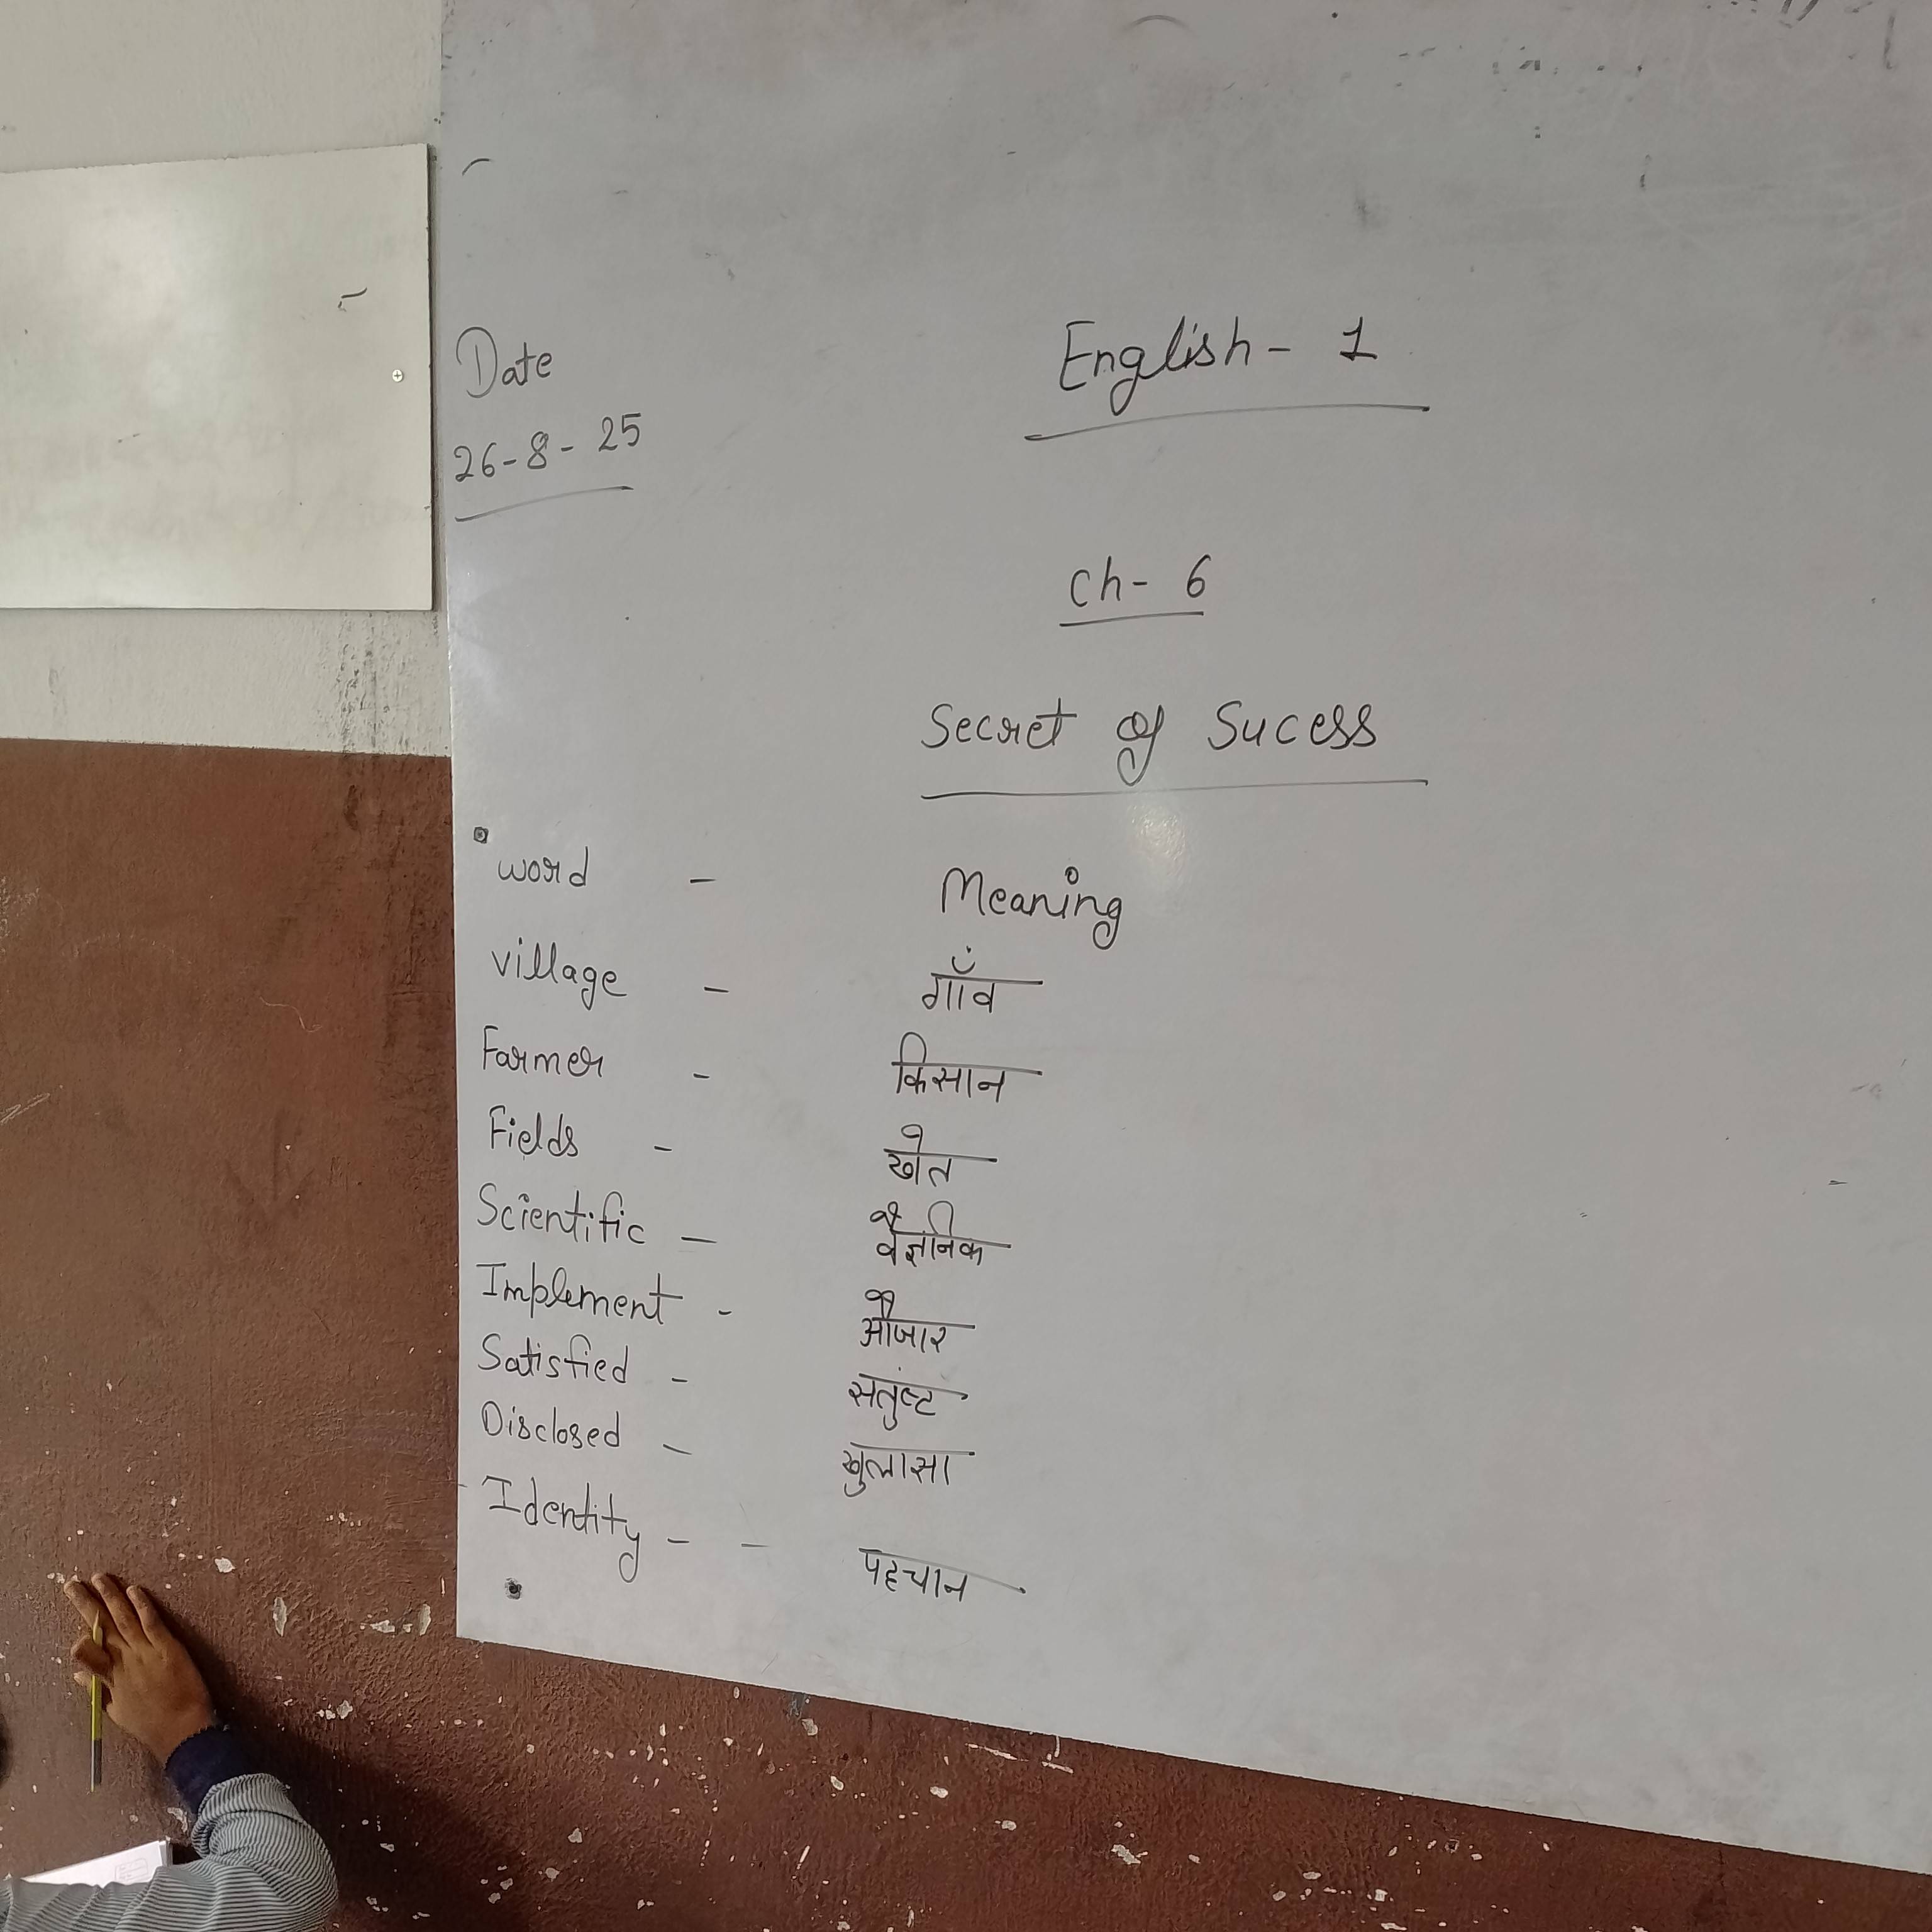 Date
26-8-25
English- 1
Ch- 6
Secret of Sucess
word - Meaning
village - गाँव
Farmer - किसान
Fields - खेत
Scientific - वैज्ञानिक
Implement - औजार
Satisfied - सतुंष्ट
Disclosed - खुलासा
Identity - - पहचान